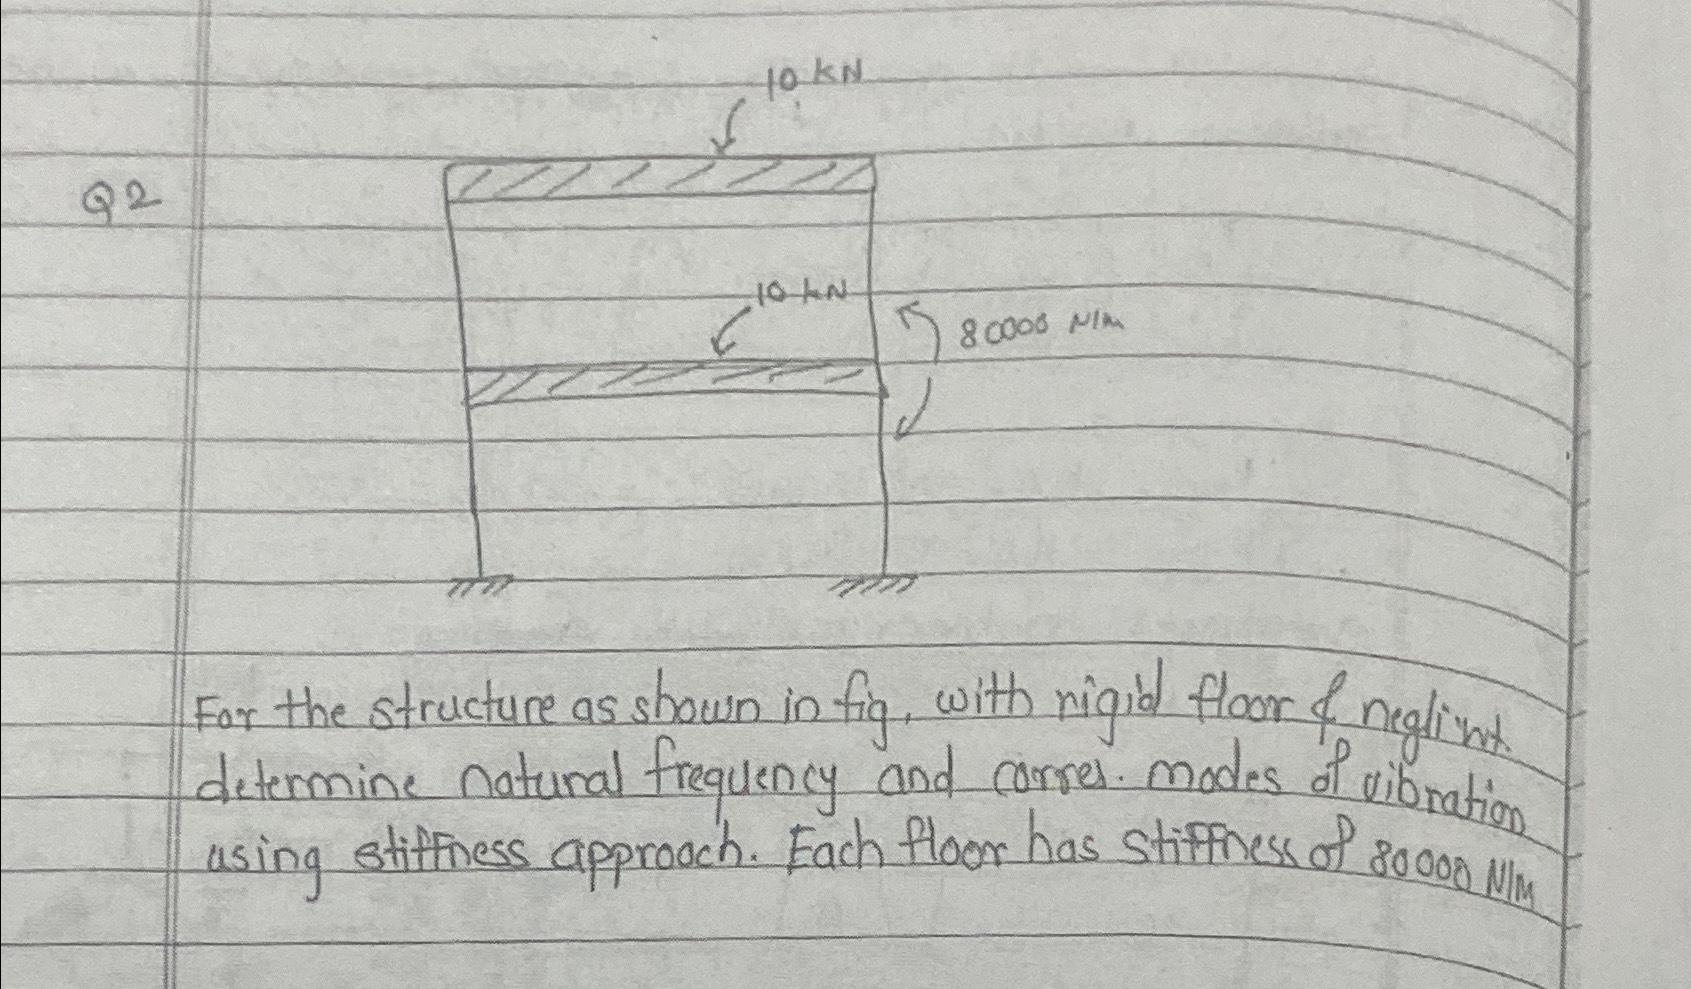 10 kN
Q2
10 kN
80000 N/m
For the structure as shown in fig, with rigid floor & neglint
determine natural frequency and corres. modes of vibration
using stiffness approach. Each floor has stiffness of 80000 N/m